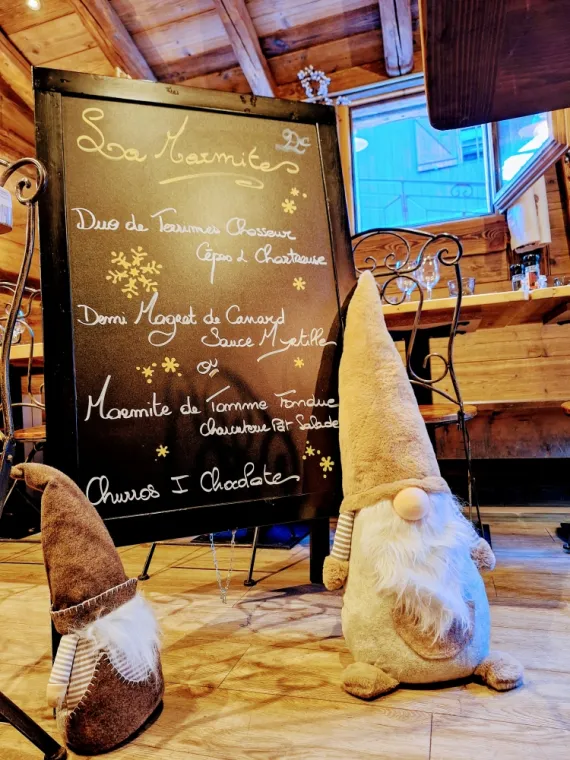 La Marmite
Duo de Terrines Chasseur
Cèpes & Chartreuse
Demi Magret de Canard
Sauce Myrtille
ou
Marmite de Tomme Fondue
Charcuterie Salade
Churros I Chocolate